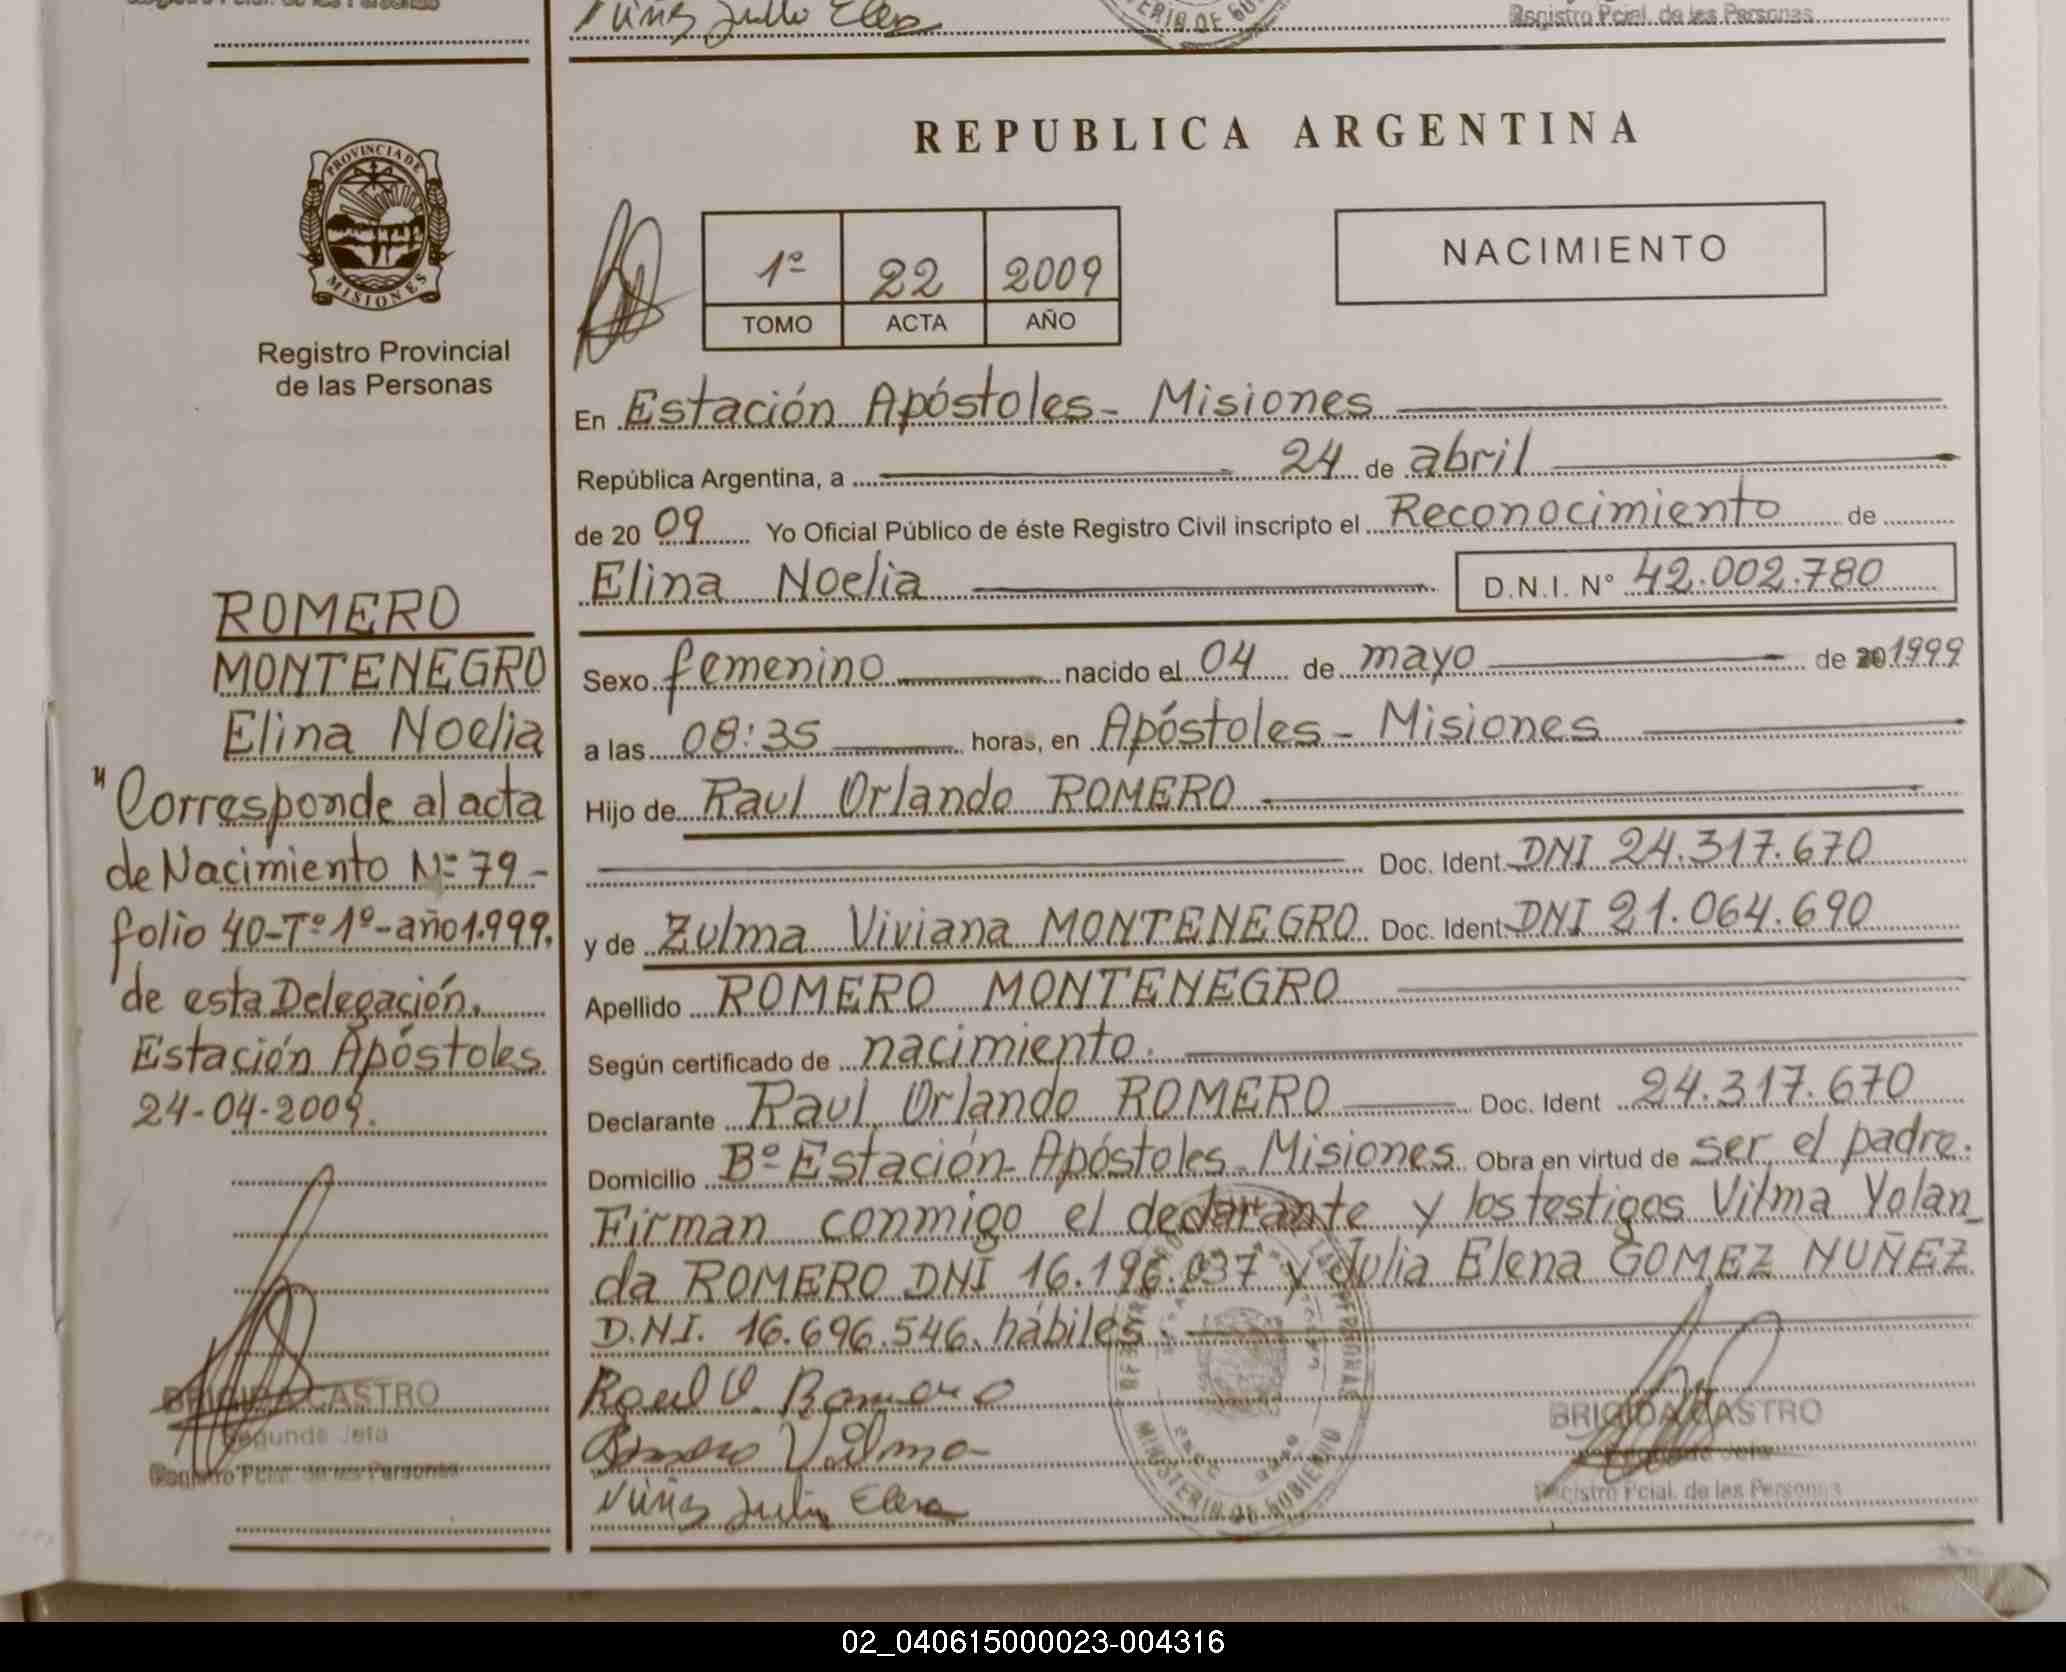 Registro Pcial. de las Personas
Nuñez Julia Elena
MINISTERIO DE GOBIERNO
Registro Pcial. de las Personas
PROVINCIA DE
MISIONES
Registro Provincial
de las Personas
ROMERO
MONTENEGRO
Elina Noelia
"Corresponde al acta
de Nacimiento Nº 79-
folio 40-Tº 1º-año 1.999.
de esta Delegación.
Estación Apóstoles
24-04-2009.
BRIGIDA CASTRO
Segunda Jefa
Registro Pcial. de las Personas
REPUBLICA ARGENTINA
1º 22 2009
TOMO ACTA AÑO
NACIMIENTO
En Estación Apóstoles- Misiones
República Argentina, a 24 de abril
de 20 09 Yo Oficial Público de éste Registro Civil inscripto el Reconocimiento de
Elina Noelia D.N.I. Nº 42.002.780
Sexo femenino nacido el 04 de mayo de 20 1999
a las 08:35 horas, en Apóstoles - Misiones
Hijo de Raul Orlando ROMERO
Doc. Ident. DNI 24.317.670
y de Zulma Viviana MONTENEGRO Doc. Ident. DNI 21.064.690
Apellido ROMERO MONTENEGRO
Según certificado de nacimiento.
Declarante Raul Orlando ROMERO Doc. Ident 24.317.670
Domicilio Bº Estación Apóstoles - Misiones Obra en virtud de ser el padre.
Firman conmigo el declarante y los testigos Vilma Yolan_
da ROMERO DNI 16.196.037 y Julia Elena GOMEZ NUÑEZ
D.N.I. 16.696.546. hábiles.
Raul O. Romero
Romero Vilma
Nuñez Julia Elena
MINISTERIO DE GOBIERNO
BRIGIDA CASTRO
Segunda Jefa
Registro Pcial. de las Personas
02_040615000023-004316